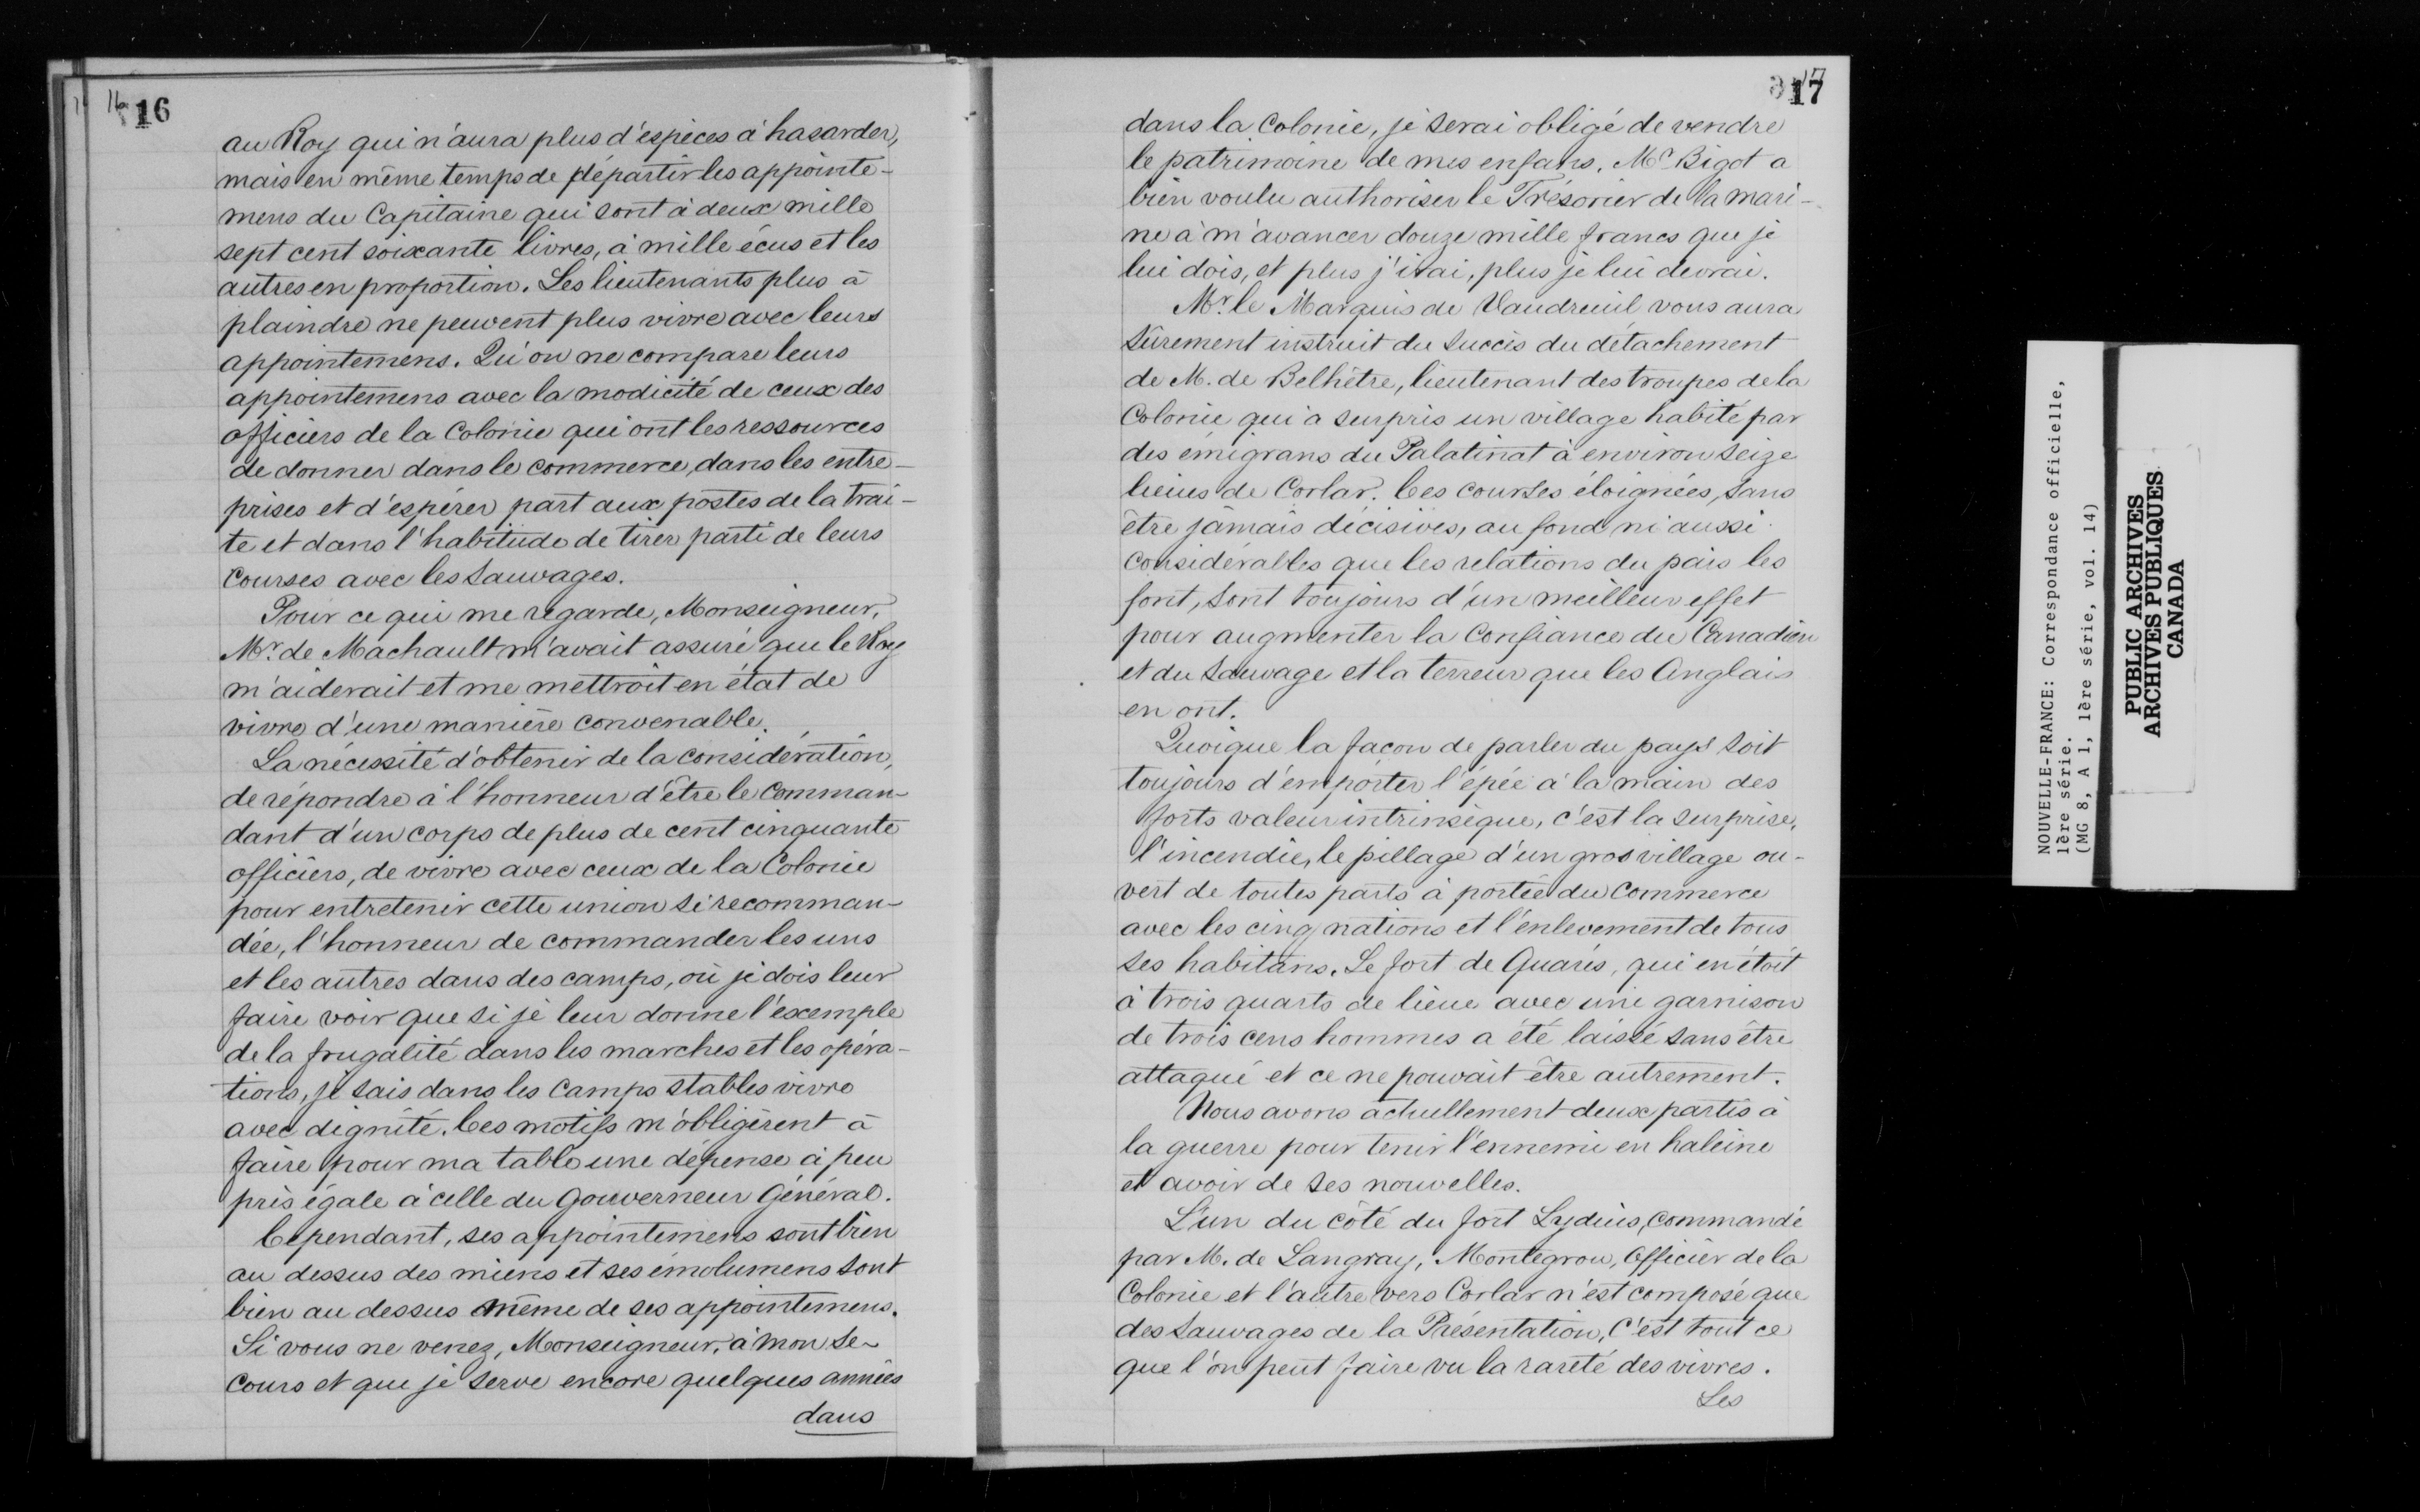 16
au Roy qui n'aura plus d'espèces à hasarder,
mais en même temps de départir les appointe-
mens du Capitaine qui sont à deux mille
sept cent soixante livres, à mille écus et les
autres en proportion. Les lieutenants plus à
plaindre ne peuvent plus vivre avec leurs
appointemens. Qu'on ne compare leurs
appointemens avec la modicité de ceux des
officiers de la Colonie qui ont les ressources
de donner dans le commerce, dans les entre-
prises et d'espérer part aux postes de la trai-
te et dans l'habitude de tirer parti de leurs
courses avec les sauvages.
Pour ce qui me regarde, Monseigneur,
Mr. de Machault m'avait assuré que le Roy
m'aiderait et me mettroit en état de
vivre d'une manière convenable.
La nécessité d'obtenir de la considération,
de répondre à l'honneur d'être le comman-
dant d'un corps de plus de cent cinquante
officiers, de vivre avec ceux de la Colonie
pour entretenir cette union si recomman-
dée, l'honneur de commander les uns
et les autres dans des camps, où je dois leur
faire voir que si je leur donne l'exemple
de la frugalité dans les marches et les opéra-
tions, je sais dans les camps stables vivre
avec dignité. Ces motifs m'obligèrent à
faire pour ma table une dépense à peu
près égale à celle du Gouverneur Général.
Cependant, ses appointemens sont bien
au dessus des miens et ses émolumens sont
bien au dessus même de ses appointemens.
Si vous ne venez, Monseigneur, à mon se-
cours et que je serve encore quelques années
dans
17
dans la Colonie, je serai obligé de vendre
le patrimoine de mes enfans. Mr Bigot a
bien voulu authoriser le Trésorier de la mari-
ne à m'avancer douze mille francs que je
lui dois, et plus j'irai, plus je lui devrai.
Mr. le Marquis de Vaudreuil vous aura
sûrement instruit du succès du détachement
de M. de Belhêtre, lieutenant des troupes de la
Colonie qui a surpris un village habité par
des émigrans du Palatinat à environ seize
lieues de Corlar. Ces courses éloignées, sans
être jamais décisives, au fond ni aussi
considérables que les relations du païs les
font, sont toujours d'un meilleur effet
pour augmenter la confiance du Canadien
et du sauvage et la terreur que les Anglais
en ont.
Quoique la façon de parler du pays soit
toujours d'emporter l'épée à la main des
forts valeur intrinsèque, c'est la surprise,
l'incendie, le pillage d'un gros village ou-
vert de toutes parts à portée du commerce
avec les cinq nations et l'enlevement de tous
ses habitans. Le fort de Quaris, qui en étoit
à trois quarts de lieue avec une garnison
de trois cens hommes a été laissé sans être
attaqué et ce ne pouvait être autrement.
Nous avons actuellement deux partis à
la guerre pour tenir l'ennemi en haleine
et avoir de ses nouvelles.
L'un du côté du fort Lydius, commandé
par M. de Langray, Montegron, Officier de la
Colonie et l'autre vers Corlar n'est composé que
des sauvages de la Présentation. C'est tout ce
que l'on peut faire vu la rareté des vivres.
Les
NOUVELLE-FRANCE: Correspondance officielle,
1ère série.
(MG 8, A 1, 1ère série, vol. 14)
PUBLIC ARCHIVES
ARCHIVES PUBLIQUES
CANADA